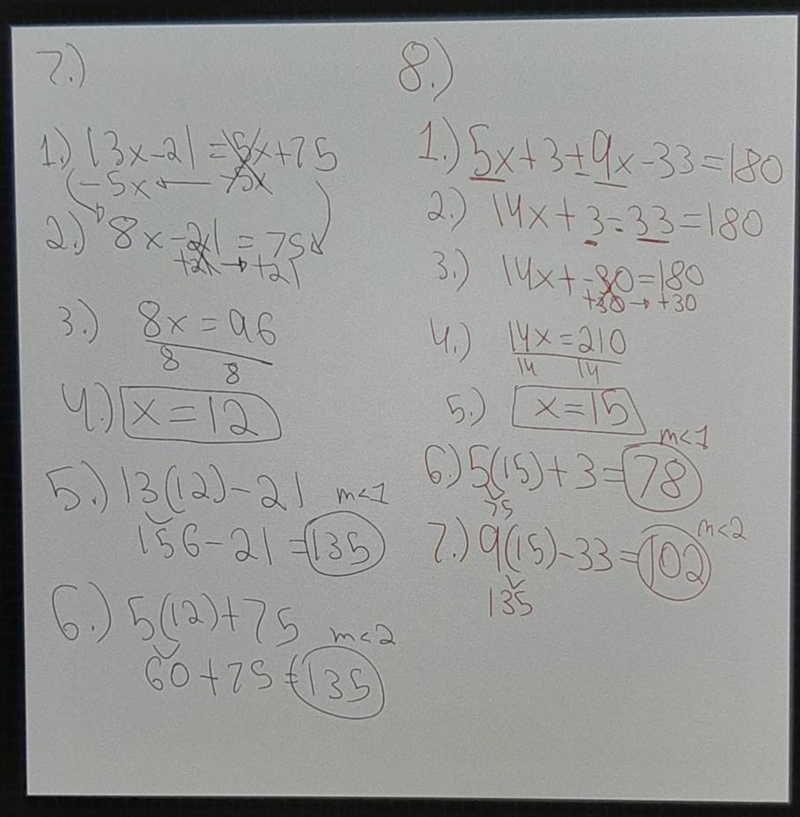 7.)
1.) 13x-21=5x+75
-5x ← -5x
2.) 8x-21=75
+21 → +21
3.) 8x=96
8 8
4.) x=12
5.) 13(12)-21 m<1
156-21=135
6.) 5(12)+75 m<2
60+75=135
8.)
1.) 5x+3+9x-33=180
2.) 14x+3-33=180
3.) 14x+-30=180
+30→+30
4.) 14x=210
14 14
5.) x=15
6.) 5(15)+3=78 m<1
75
7.) 9(15)-33=102 m<2
135